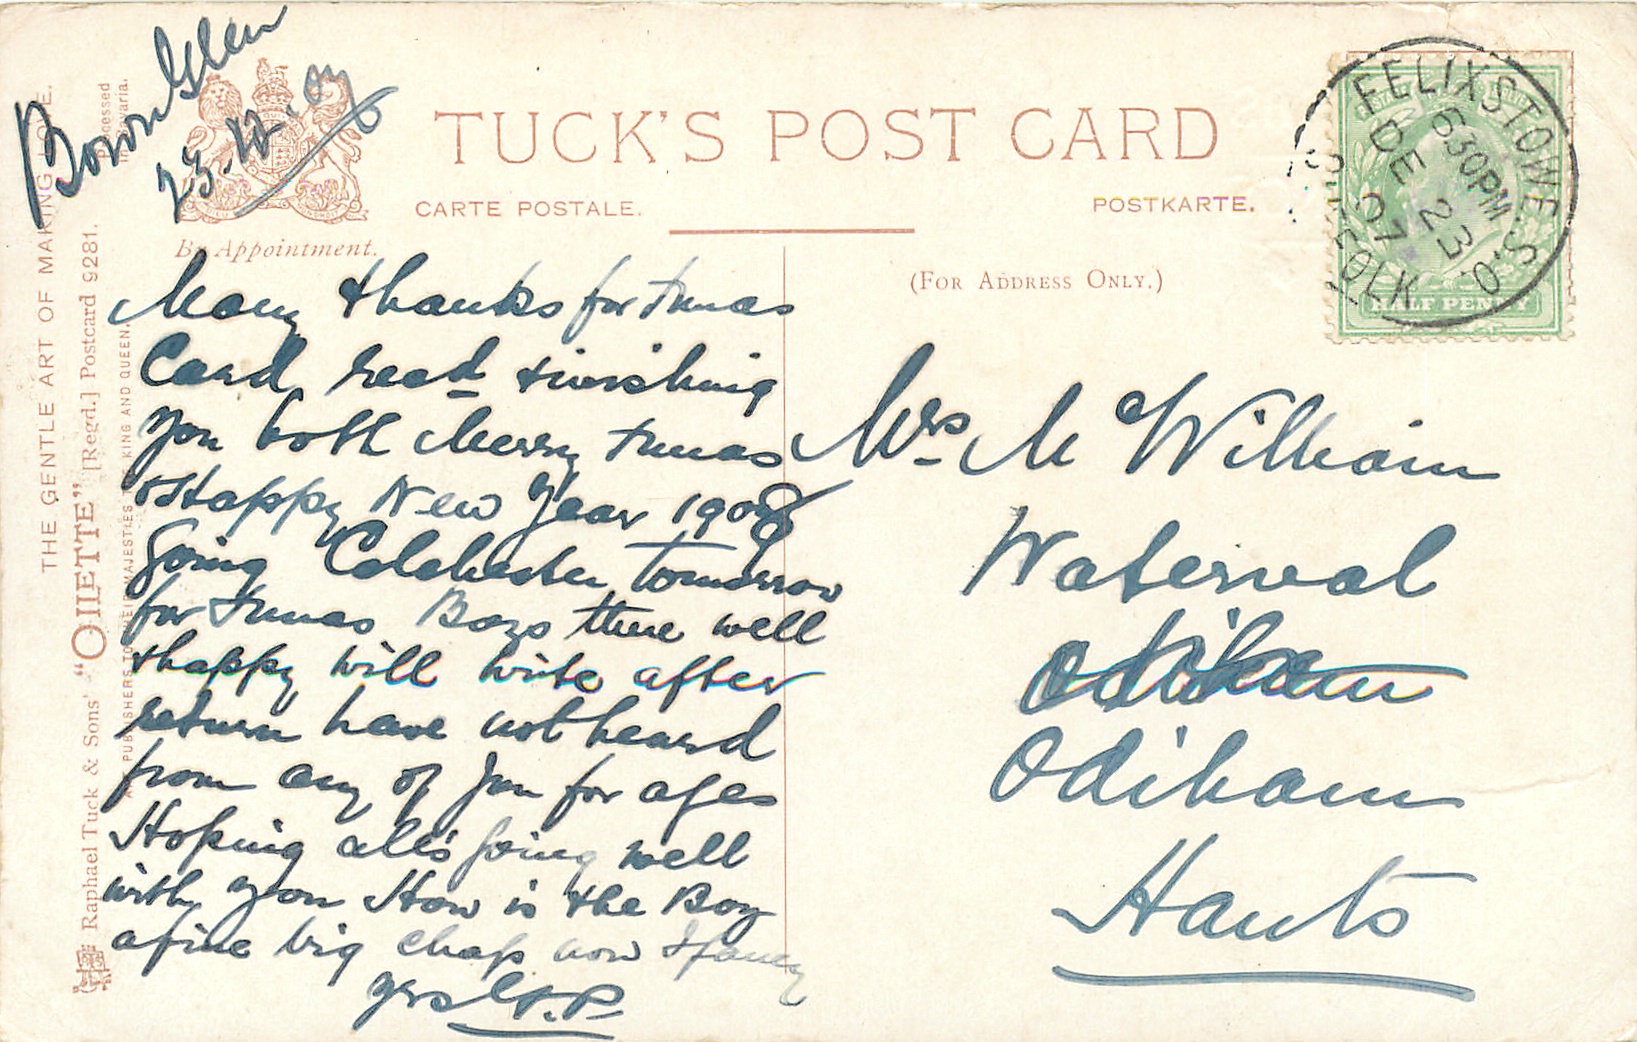 23.12.07
TUCK'S POST CARD
CARTE POSTALE.
POSTKARTE.
By Appointment.
(For Address Only.)
FELIXSTOWE. S.O.
6 30 PM
DE 23
07
SUFFOLK
HALF PENNY
Many thanks for Xmas
Card, recd & wishing
you both Merry Xmas
& Happy New Year 1908
Going Colchester tomorrow
for Xmas Boys there well
& happy will write after
return have not heard
from any of you for ages
Hoping all's going well
with you How is the Boy
a fine big chap now I fancy
yrs
Mrs Mc William
Waterval
Odiham
Odiham
Hants
THE GENTLE ART OF MAKING LOVE.
Raphael Tuck & Sons' "OILETTE" [Regd.] Postcard 9281.
PUBLISHERS TO THEIR MAJESTIES THE KING AND QUEEN.
Processed
in Bavaria.